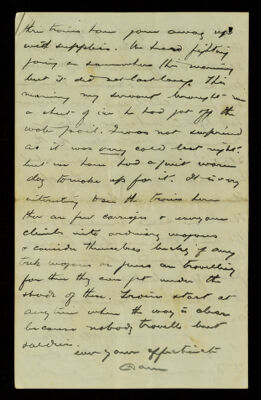 three trains have gone away up
with supplies. We heard fighting
going on somewhere this morning
but it did not last long. This
morning my servant brought in
a sheet of ice he had got off the
water pail. I was not surprised
as it was very cold last night.
but we have had a quite warm
day to make up for it. It is very
interesting to see the trains here
there are few carriages & everyone
climbs into ordinary waggons
& consider themselves lucky if any
trek wagons or guns are travelling
for then they can get under the
shade of these. Trains start at
any time when the way is clear
because nobody travels but
soldiers.
ever your affectionate